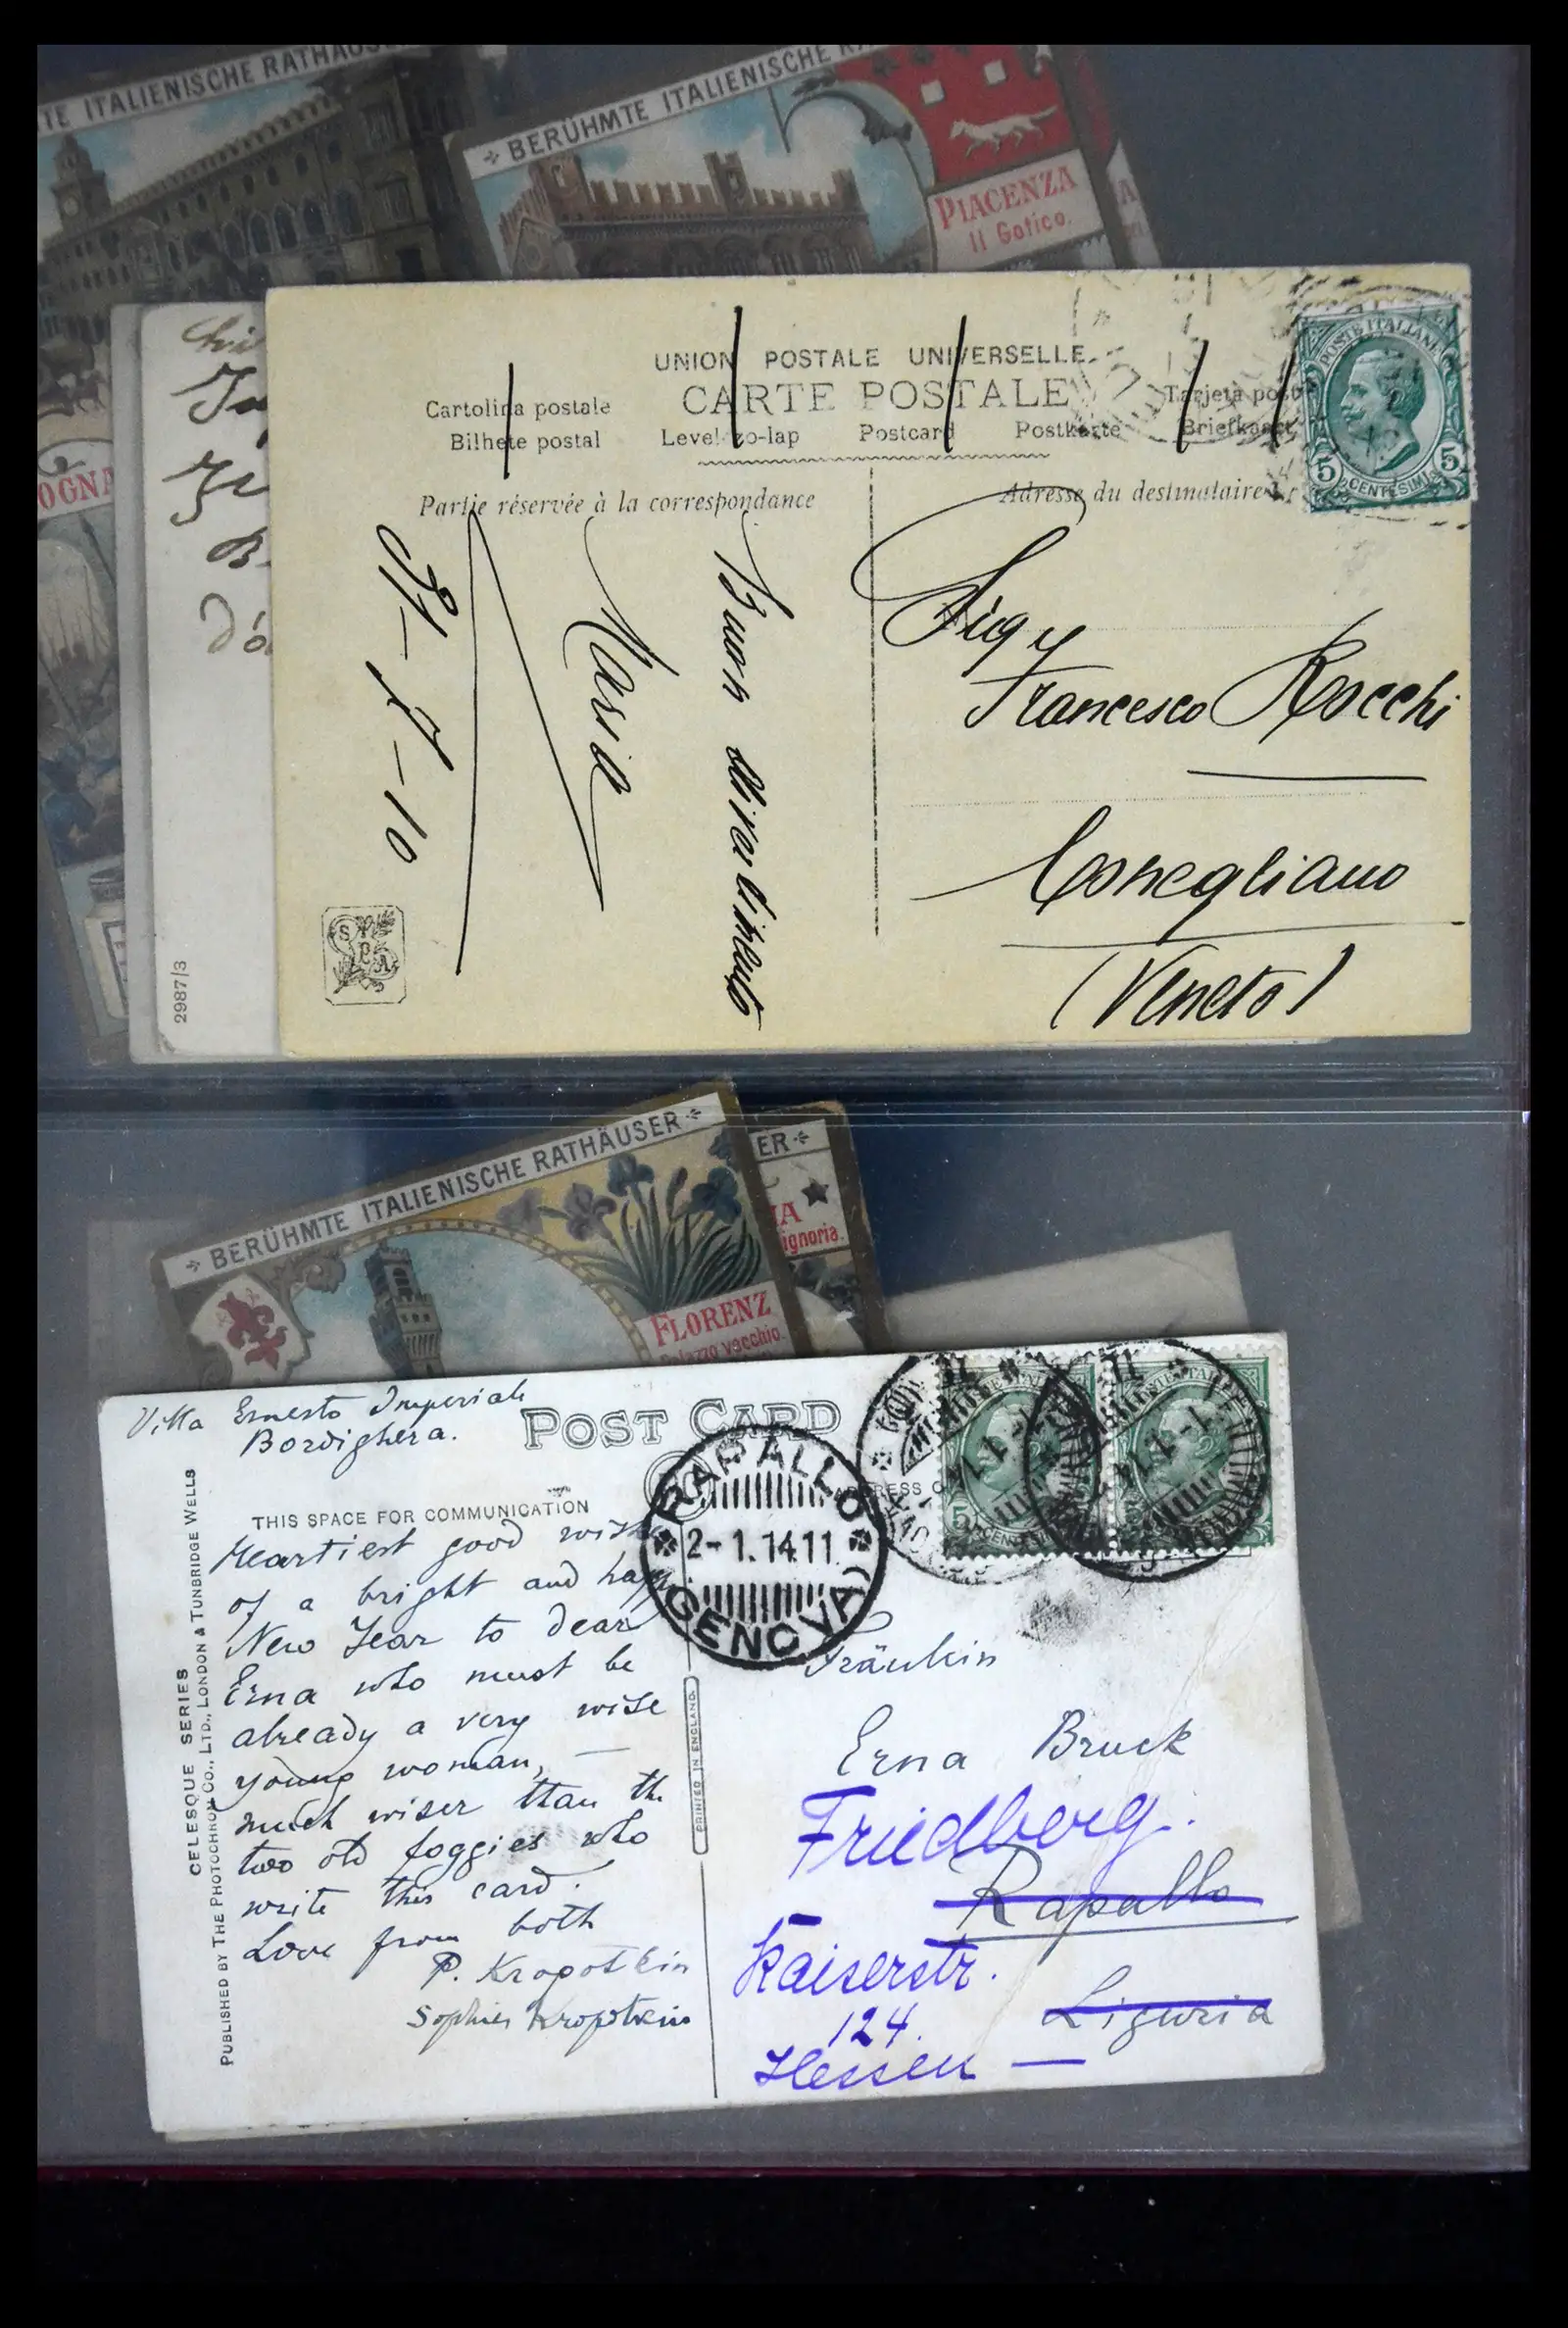 TE ITALIENISCHE RATHÄUS
BERÜHMTE ITALIENISCHE RA
PIACENZA
Il Gotico.
OGNA
2987/3
UNION POSTALE UNIVERSELLE
CARTE POSTALE
Cartolina postale
Tarjeta post
Bilhete postal
Levelezo-lap
Postcard
Postkarte
Briefkaart
Partie réservée à la correspondance
Adresse du destinataire
POSTE ITALIANE
5 CENTESIMI 5
Buon
Maria
Francesco Rocchi
Conegliano
(Veneto)
BERÜHMTE ITALIENISCHE RATHÄUSER
ER
FLORENZ
Palazzo vecchio.
IA
ignoria.
Villa Ernesto Imperiale
Bordighera.
POST CARD
THIS SPACE FOR COMMUNICATION
RAPALLO
2-1.14.11
(GENOVA)
Heartiest good wishes
of a bright and happy
New Year to dear
Erna who must be
already a very wise
young woman, —
much wiser than the
two old foggies who
write this card.
Love from both
P. Kropotkin
Sophie Kropotkin
CELESQUE SERIES
PUBLISHED BY THE PHOTOCHROM CO., LTD., LONDON & TUNBRIDGE WELLS
PRINTED IN ENGLAND.
Fräulein
Erna Bruck
Friedberg.
Rapallo
Kaiserstr.
124.
Liguria
Hessen —